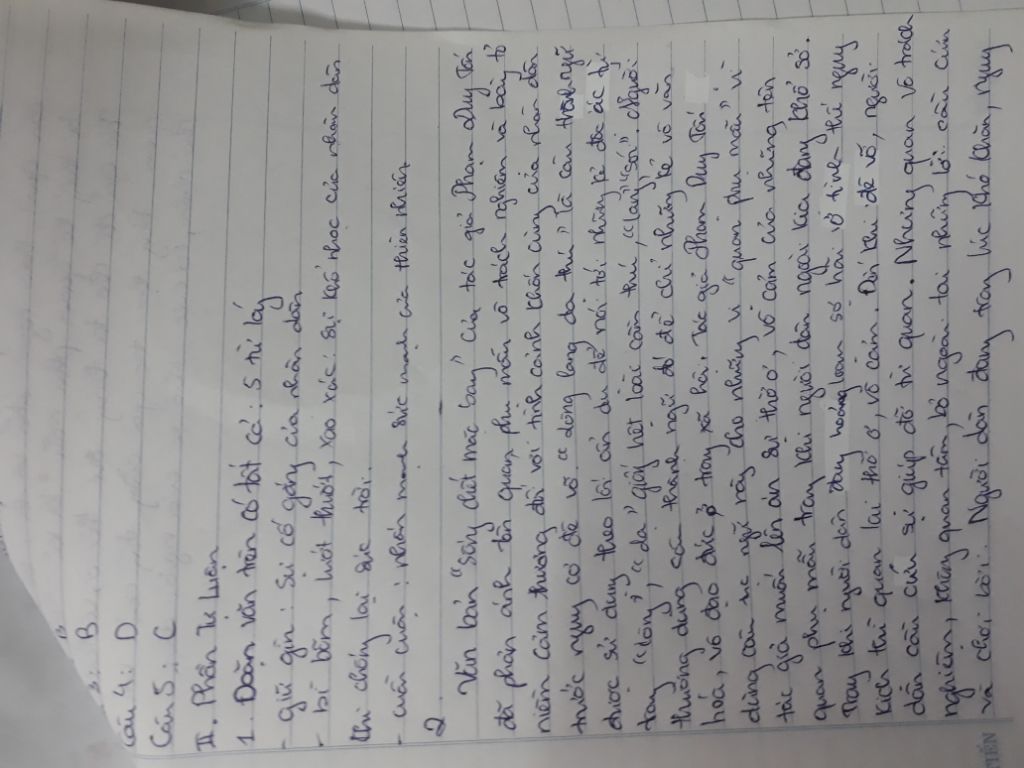 3: B
Câu 4: D
Câu 5: C
II. Phần Tự Luận
1. Đoạn văn trên có tất cả: 5 từ láy
- giữ gìn: sự cố gắng của nhân dân
- bì bõm, lướt thướt, xao xác: sự khổ nhọc của nhân dân
khi chống lại sức trời.
- cuồn cuộn: nhấn mạnh sức mạnh của thiên nhiên
2.
Văn bản "Sống chết mặc bay" của tác giả Phạm Duy Tốn
đã phản ánh tên quan phụ mẫu vô trách nghiệm và bày tỏ
niềm cảm thương đối với tình cảnh khốn cùng của nhân dân
trước nguy cơ đê vỡ. "lòng lang dạ thú" là cụm
được sử dụng theo lối ẩn dụ để nói tới những kẻ độc ác
"lòng", "dạ" giống hệt loài cầm thú, "lang", "sói". Người
thường dùng thành ngữ đó để chỉ những kẻ vô văn
hoá, vô đạo đức ở trong xã hội. Tác giả Phạm Duy Tốn
dùng cụm từ ngữ này cho những vị "quan phụ mẫu" vì
tác giả muốn lên án sự thờ ơ, vô cảm của những tên
quan phụ mẫu trong khi người dân ngoài kia đang khổ sở.
Trong khi người dân đang hoảng loạn sợ hãi vô tình thú nguy
kịch thì quan lại thờ ơ, vô cảm. Đôi khi đê vỡ, người
dân cần sự giúp đỡ từ quan. Nhưng quan vô trách
nghiệm, không quan tâm, bỏ ngoài tai những lời cầu cứu
và chơi bời. Người dân đang trong lúc khó khăn, nguy
TIẾN